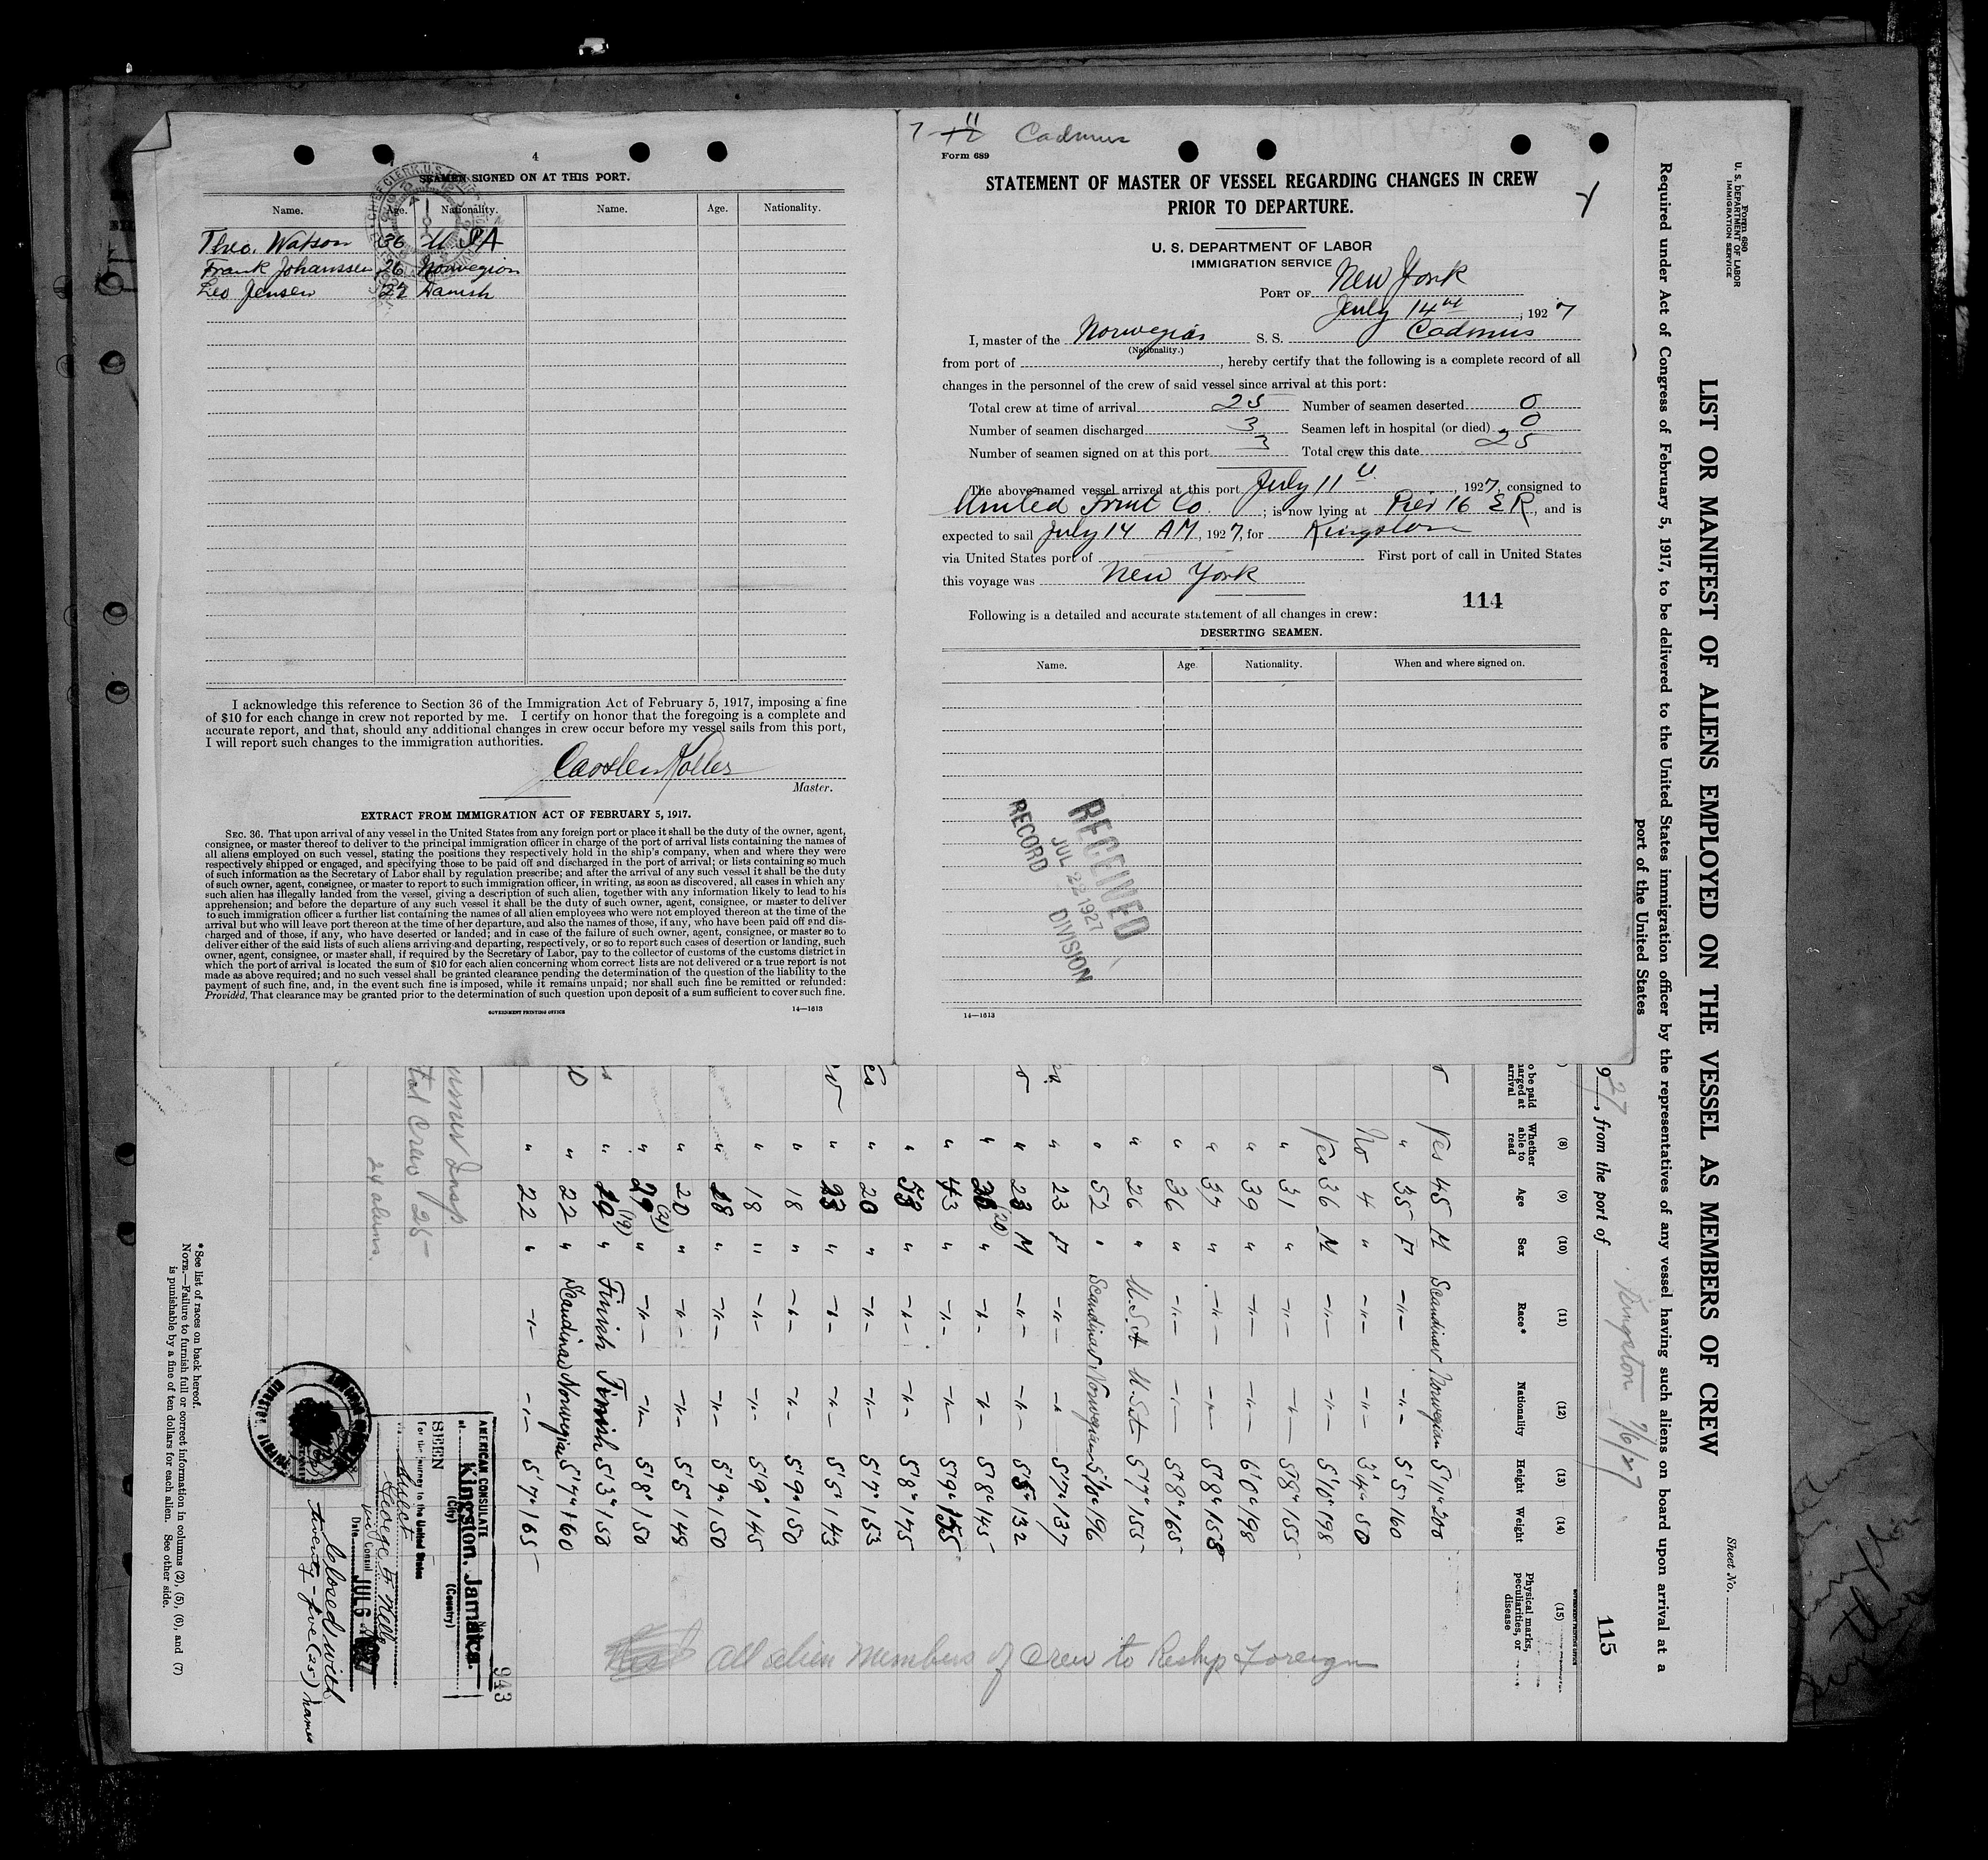 4
SEAMEN SIGNED ON AT THIS PORT.
Name. Age. Nationality. Name. Age. Nationality.
Theo. Watson 36 U S A
Frank Johanssen 26 Norwegian
Leo Jensen 27 Danish
I acknowledge this reference to Section 36 of the Immigration Act of February 5, 1917, imposing a fine
of $10 for each change in crew not reported by me. I certify on honor that the foregoing is a complete and
accurate report, and that, should any additional changes in crew occur before my vessel sails from this port,
I will report such changes to the immigration authorities.
Master.
EXTRACT FROM IMMIGRATION ACT OF FEBRUARY 5, 1917.
SEC. 36. That upon arrival of any vessel in the United States from any foreign port or place it shall be the duty of the owner, agent,
consignee, or master thereof to deliver to the principal immigration officer in charge of the port of arrival lists containing the names of
all aliens employed on such vessel, stating the positions they respectively hold in the ship's company, when and where they were
respectively shipped or engaged, and specifying those to be paid off and discharged in the port of arrival; or lists containing so much
of such information as the Secretary of Labor shall by regulation prescribe; and after the arrival of any such vessel it shall be the duty
of such owner, agent, consignee, or master to report to such immigration officer, in writing, as soon as discovered, all cases in which any
such alien has illegally landed from the vessel, giving a description of such alien, together with any information likely to lead to his
apprehension; and before the departure of any such vessel it shall be the duty of such owner, agent, consignee, or master to deliver
to such immigration officer a further list containing the names of all alien employees who were not employed thereon at the time of the
arrival but who will leave port thereon at the time of her departure, and also the names of those, if any, who have been paid off and dis-
charged and of those, if any, who have deserted or landed; and in case of the failure of such owner, agent, consignee, or master so to
deliver either of the said lists of such aliens arriving and departing, respectively, or so to report such cases of desertion or landing, such
owner, agent, consignee, or master shall, if required by the Secretary of Labor, pay to the collector of customs of the customs district in
which the port of arrival is located the sum of $10 for each alien concerning whom correct lists are not delivered or a true report is not
made as above required; and no such vessel shall be granted clearance pending the determination of the question of the liability to the
payment of such fine, and, in the event such fine is imposed, while it remains unpaid; nor shall such fine be remitted or refunded:
Provided, That clearance may be granted prior to the determination of such question upon deposit of a sum sufficient to cover such fine.
GOVERNMENT PRINTING OFFICE 14—1613
7 11 Cadmus
Form 689
STATEMENT OF MASTER OF VESSEL REGARDING CHANGES IN CREW
PRIOR TO DEPARTURE.
U. S. DEPARTMENT OF LABOR
IMMIGRATION SERVICE
PORT OF New York
July 14th, 1927
I, master of the Norwegian S. S. Cadmus
(Nationality.)
from port of , hereby certify that the following is a complete record of all
changes in the personnel of the crew of said vessel since arrival at this port:
Total crew at time of arrival 25 Number of seamen deserted 0
Number of seamen discharged 3 Seamen left in hospital (or died) 0
Number of seamen signed on at this port 3 Total crew this date 25
The above-named vessel arrived at this port July 11, 1927, consigned to
United Fruit Co. ; is now lying at Pier 16 E R, and is
expected to sail July 14 AM, 1927, for Kingston
via United States port of First port of call in United States
this voyage was New York
114
Following is a detailed and accurate statement of all changes in crew:
DESERTING SEAMEN.
Name. Age. Nationality. When and where signed on.
RECEIVED
JUL 22 1927
RECORD DIVISION
14—1613
Form 680
U. S. DEPARTMENT OF LABOR
IMMIGRATION SERVICE
Sheet No.
LIST OR MANIFEST OF ALIENS EMPLOYED ON THE VESSEL AS MEMBERS OF CREW
Required under Act of Congress of February 5, 1917, to be delivered to the United States immigration officer by the representatives of any vessel having such aliens on board upon arrival at a
port of the United States
927, from the port of Kingston 7/6/27
115
(8) (9) (10) (11) (12) (13) (14) (15)
Whether able to read Age Sex Race* Nationality Height Weight Physical marks, peculiarities, or disease
Yes 45 M Scandinav Norwegian 5'11" 200
" 35 F -"- -"- 5'5" 160
No 4 " -"- -"- 3'4" 50
Yes 36 M -"- -"- 5'10" 198
" 31 " -"- -"- 5'8" 155
" 39 " -"- -"- 6'0" 198
" 37 " -"- -"- 5'8" 158
" 36 " -"- -"- 5'8" 165
" 26 " U.S.A U.S.A 5'7" 155
" 52 " Scandinav Norwegian 5'10" 196
" 23 F -"- -"- 5'7" 137
" 23 M -"- -"- 5'5" 132
" (20) " -"- -"- 5'8" 145
" 43 " -"- -"- 5'9" 155
" 53 " -"- -"- 5'8" 175
" 20 " -"- -"- 5'7" 153
" 23 " -"- -"- 5'5" 143
" 18 " -"- -"- 5'9" 150
" 18 " -"- -"- 5'9" 145
" 18 " -"- -"- 5'9" 150
" 20 " -"- -"- 5'5" 148
" (21) " -"- -"- 5'8" 150
" (19) " Finish Finish 5'3" 150
" 22 " Scandinav Norwegian 5'7" 160
" 22 " -"- -"- 5'7" 165
All alien members of crew to Reship Foreign
943
Crew 25
24 aliens.
AMERICAN CONSULATE
at Kingston, Jamaica.
(City) (Country)
SEEN
For the journey to the United States
Date JUL 6 1927
Closed with
twenty-five (25) names
* See list of races on back hereof.
NOTE.—Failure to furnish full or correct information in columns (2), (5), (6), and (7)
is punishable by a fine of ten dollars for each alien. See other side.